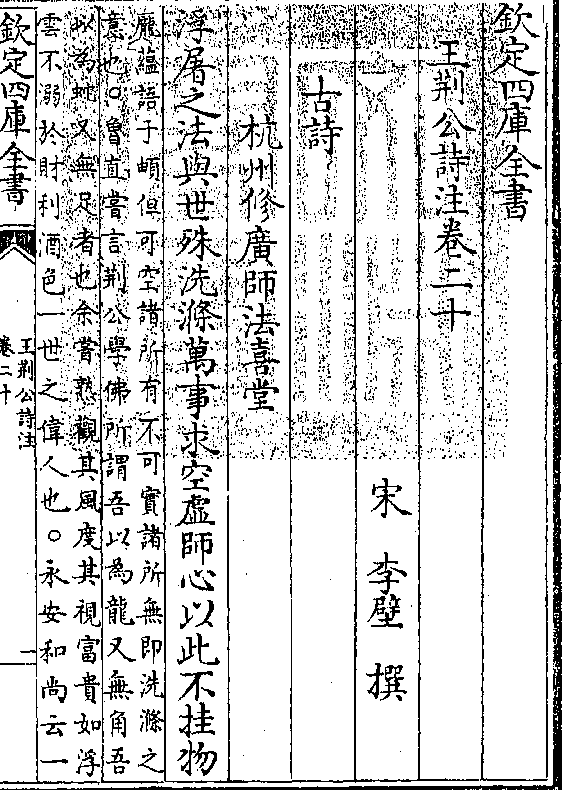 欽定四庫全書
王荆公詩注卷二十
宋 李壁 撰
古詩
杭州修廣師法喜堂
浮屠之法與世殊洗滌萬事求空虛師心以此不挂物
龐蘊語于頔但可空諸所有不可實諸所無即洗滌之
意也○魯直嘗言荆公學佛所謂吾以為龍又無角吾
以為蛇又無足者也余嘗熟觀其風度其視富貴如浮
雲不溺於財利酒色一世之偉人也○永安和尚云一
欽定四庫全書
王荆公詩注
卷二十
一